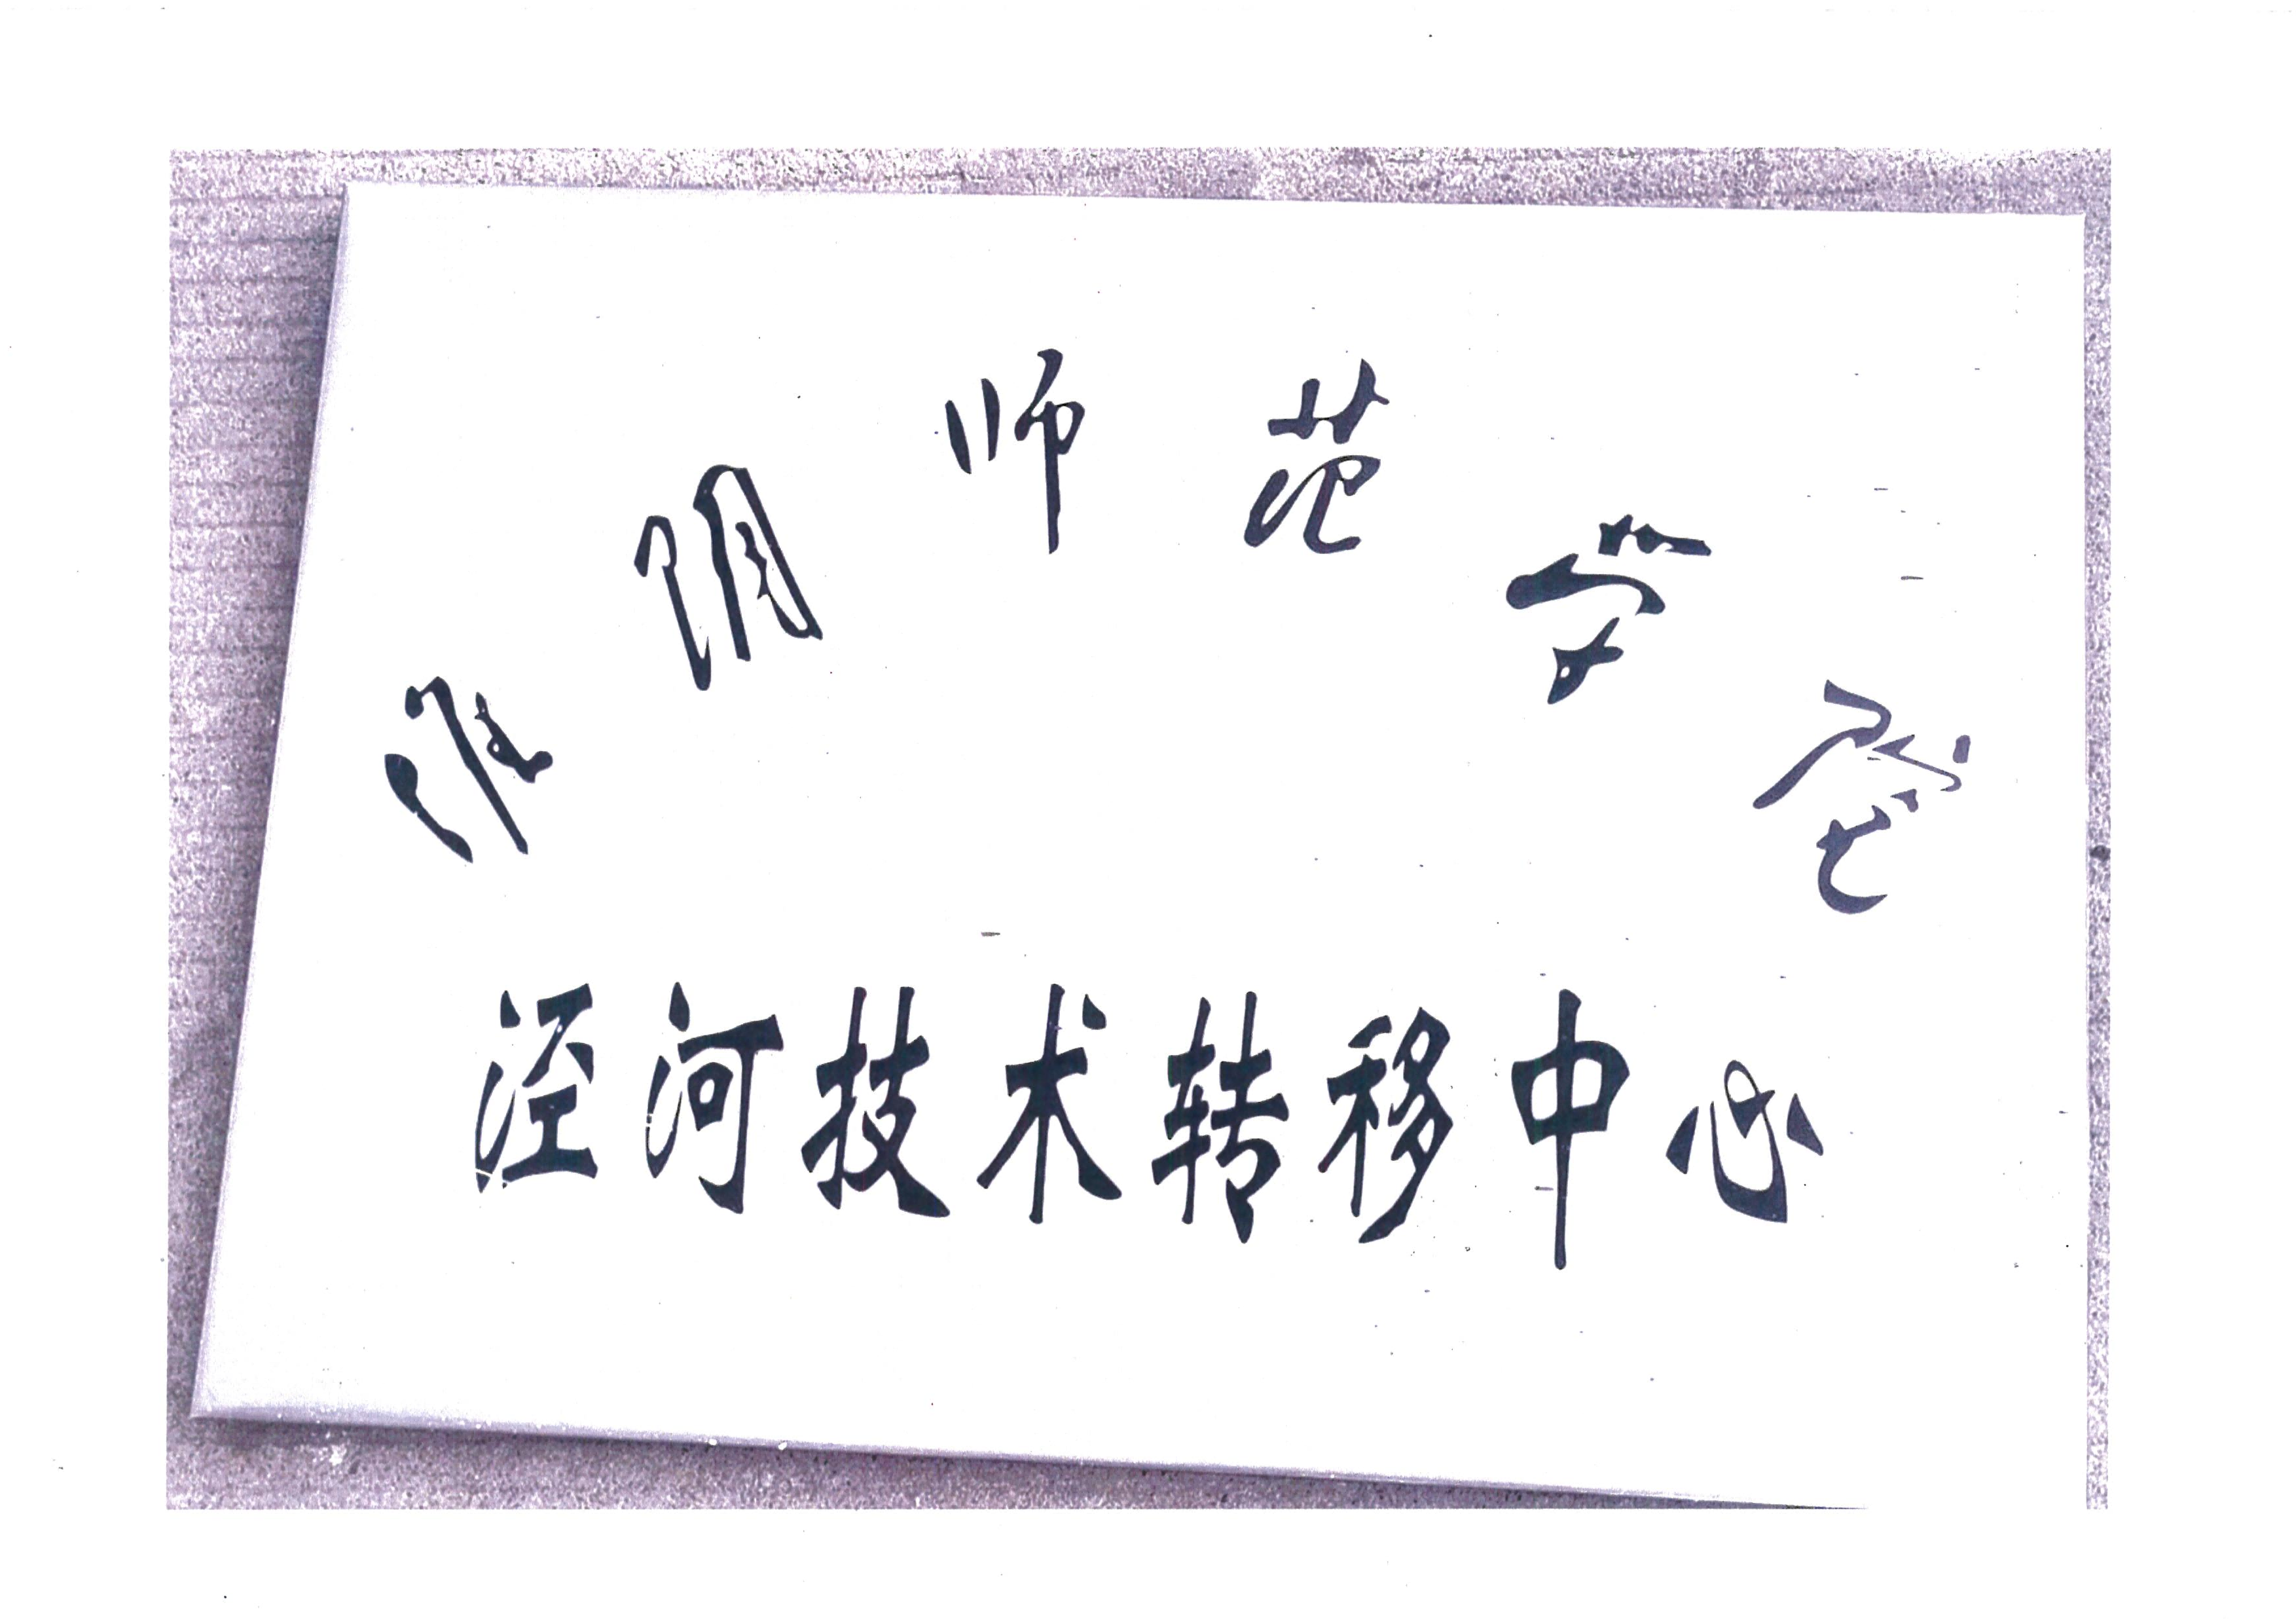 淮阴师范学院
泾河技术转移中心